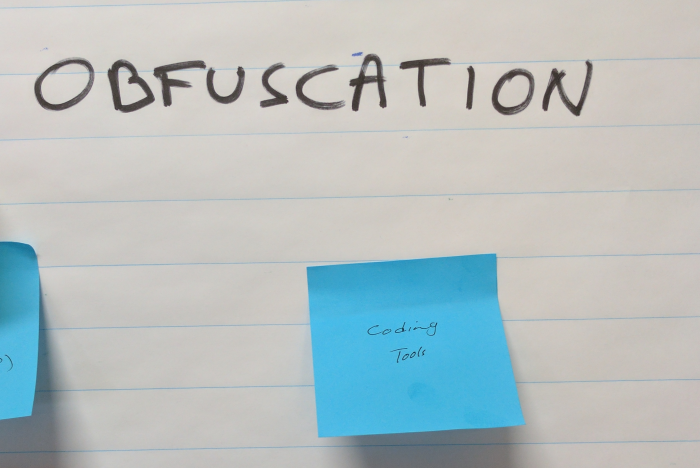 OBFUSCATION
Coding
Tools